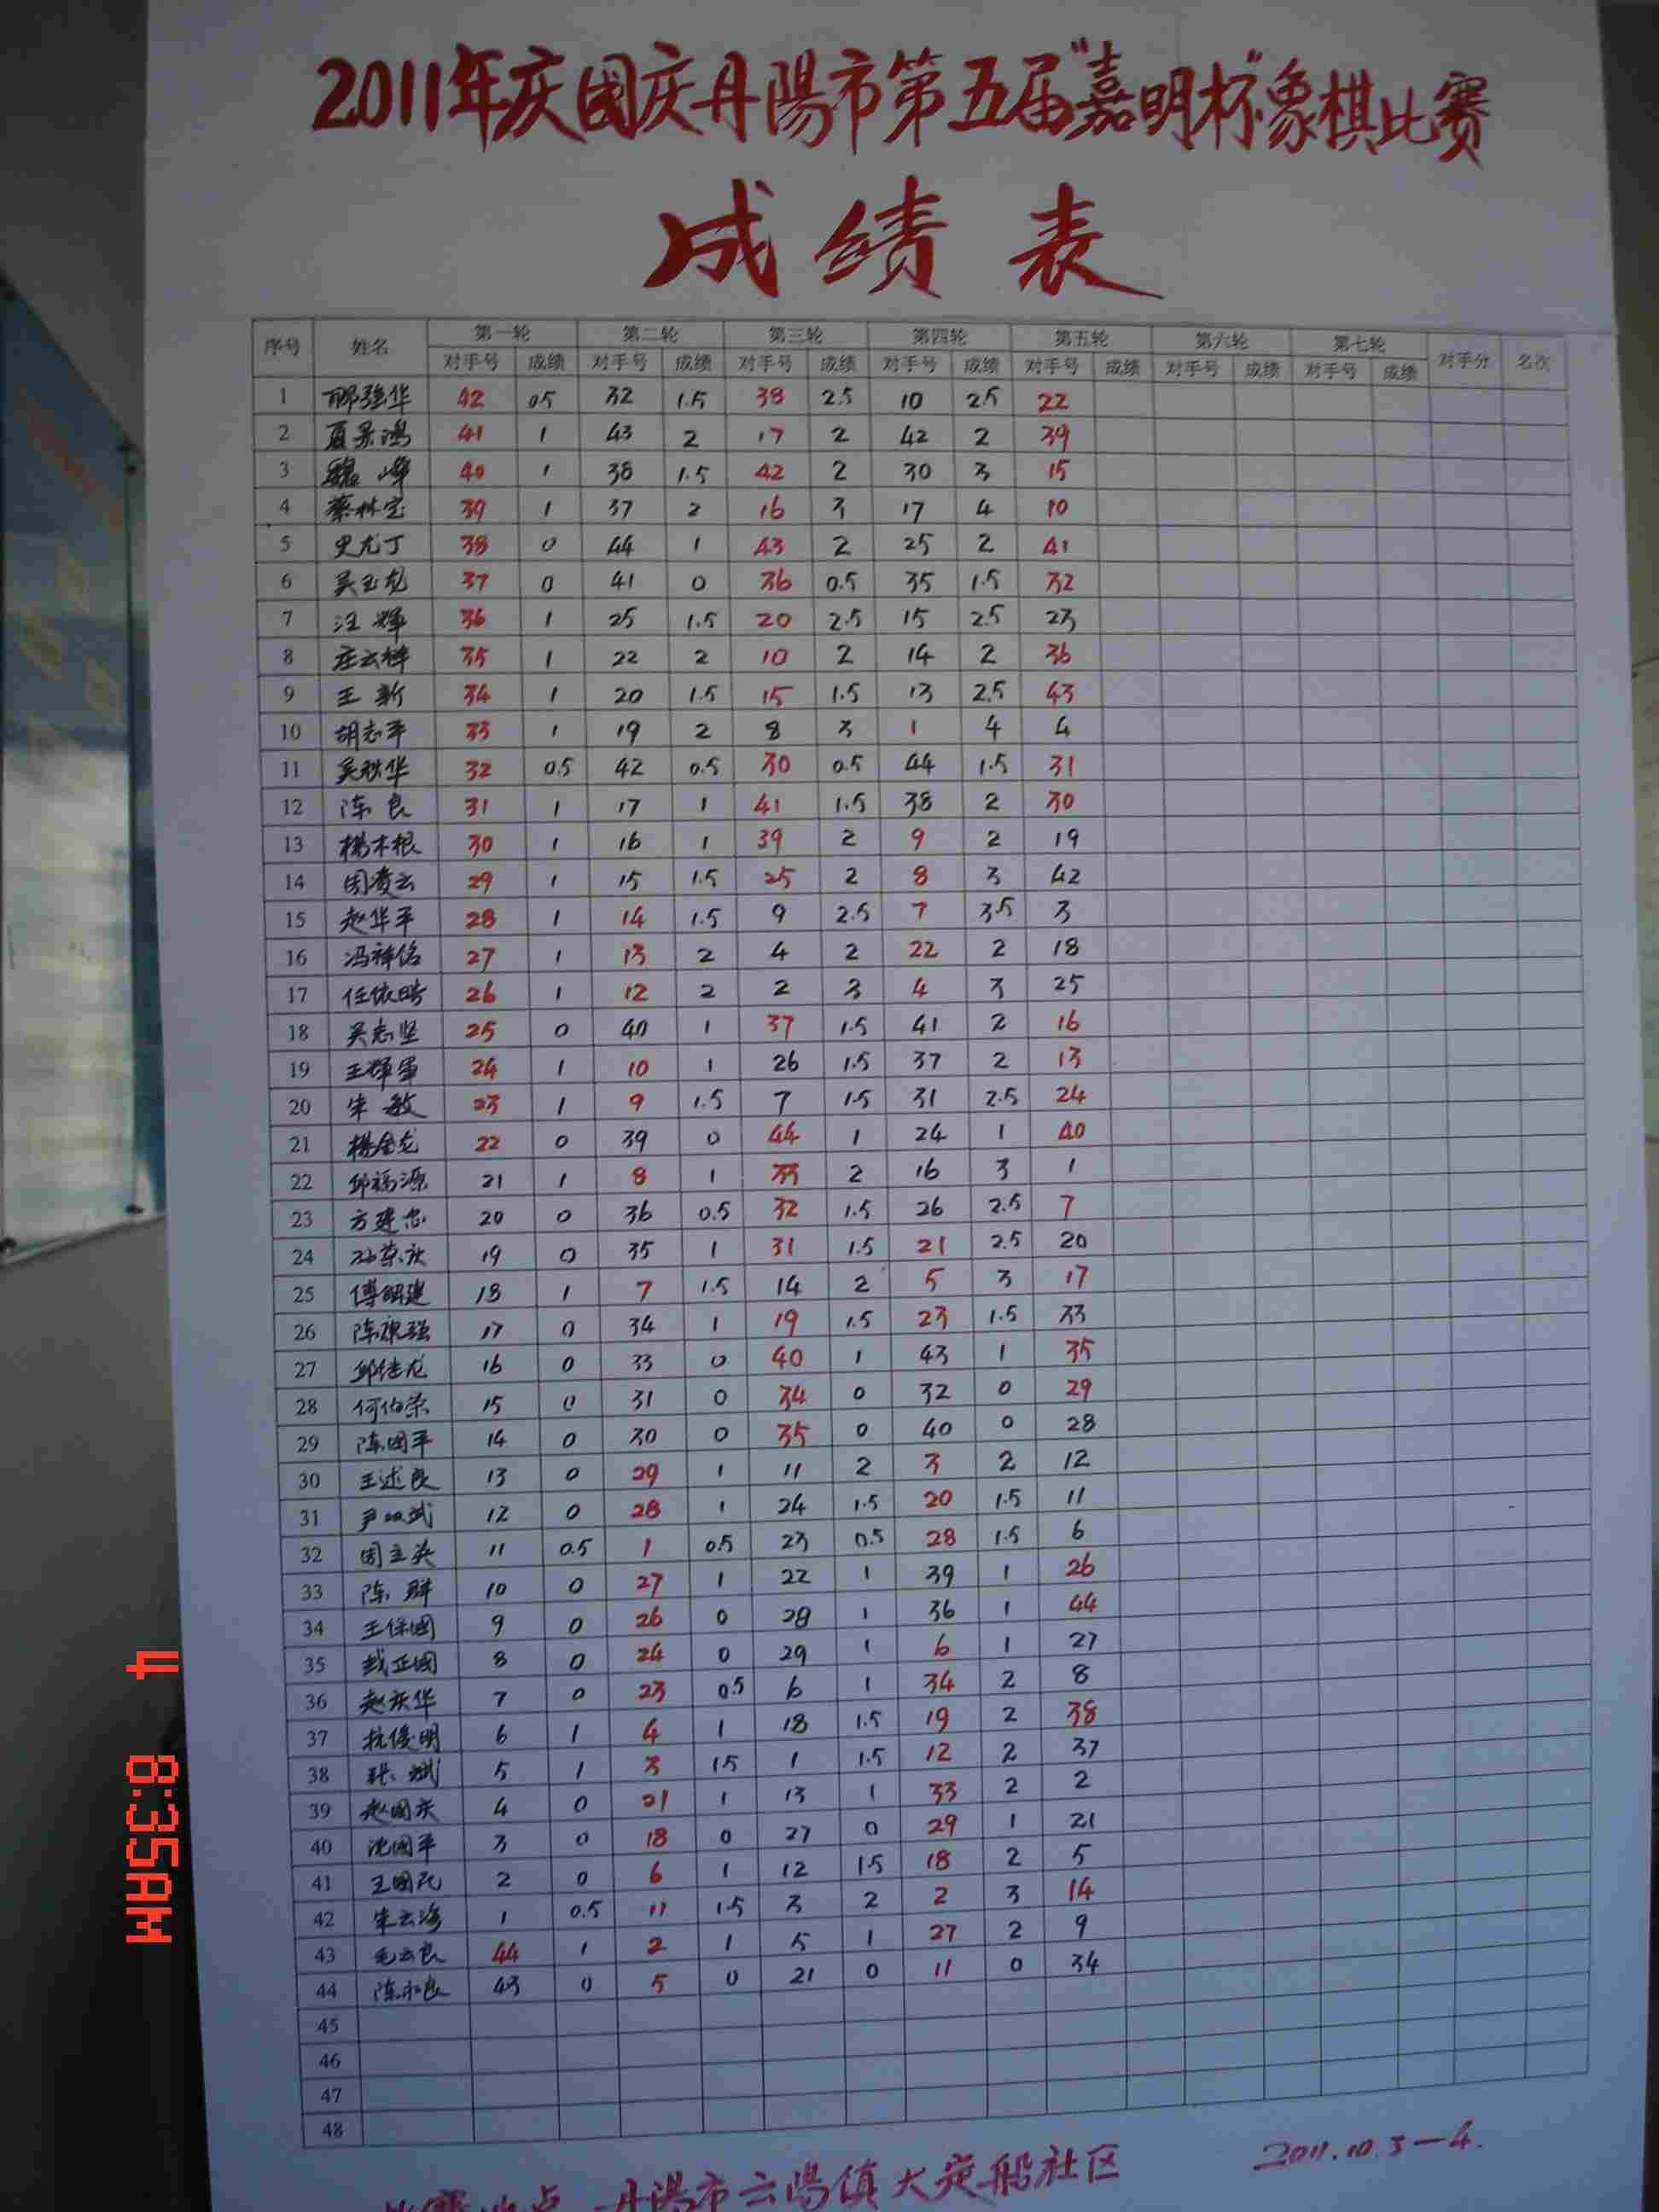 2011年庆国庆丹陽市第五届"嘉明杯"象棋比赛
成绩表
序号 姓名 第一轮 第二轮 第三轮 第四轮 第五轮 第六轮 第七轮 对手分 名次
对手号 成绩 对手号 成绩 对手号 成绩 对手号 成绩 对手号 成绩 对手号 成绩 对手号 成绩
1 郦强华 42 0.5 32 1.5 38 2.5 10 2.5 22
2 夏景鸿 41 1 43 2 17 2 42 2 39
3 魏峰 40 1 38 1.5 42 2 30 3 15
4 蔡林宝 39 1 37 2 16 3 17 4 10
5 史尤丁 38 0 44 1 43 2 25 2 41
6 吴玉龙 37 0 41 0 36 0.5 35 1.5 32
7 汪辉 36 1 25 1.5 20 2.5 15 2.5 23
8 庄云祥 35 1 22 2 10 2 14 2 36
9 王新 34 1 20 1.5 15 1.5 13 2.5 43
10 胡志平 33 1 19 2 8 3 1 4 4
11 吴秋华 32 0.5 42 0.5 30 0.5 44 1.5 31
12 陈良 31 1 17 1 41 1.5 38 2 30
13 楊木根 30 1 16 1 39 2 9 2 19
14 29 1 15 1.5 25 2 8 3 42
15 赵华平 28 1 14 1.5 9 2.5 7 3.5 3
16 冯祥佲 27 1 13 2 4 2 22 2 18
17 26 1 12 2 2 3 4 3 25
18 吴志坚 25 0 40 1 37 1.5 41 2 16
19 王輝軍 24 1 10 1 26 1.5 37 2 13
20 朱敏 23 1 9 1.5 7 1.5 31 2.5 24
21 楊金龙 22 0 39 0 44 1 24 1 40
22 邹福源 21 1 8 1 33 2 16 3 1
23 方建忠 20 0 36 0.5 32 1.5 26 2.5 7
24 19 0 35 1 31 1.5 21 2.5 20
25 傅明建 18 1 7 1.5 14 2 5 3 17
26 陈康强 17 0 34 1 19 1.5 23 1.5 33
27 16 0 33 0 40 1 43 1 35
28 何伯荣 15 0 31 0 34 0 32 0 29
29 陈国平 14 0 30 0 35 0 40 0 28
30 王述良 13 0 29 1 11 2 3 2 12
31 12 0 28 1 24 1.5 20 1.5 11
32 11 0.5 1 0.5 23 0.5 28 1.5 6
33 陈群 10 0 27 1 22 1 39 1 26
34 王保國 9 0 26 0 28 1 36 1 44
35 8 0 24 0 29 1 6 1 27
36 赵庆华 7 0 23 0.5 6 1 34 2 8
37 杭俊明 6 1 4 1 18 1.5 19 2 38
38 张斌 5 1 3 1.5 1 1.5 12 2 37
39 赵國庆 4 0 21 1 13 1 33 2 2
40 沈國平 3 0 18 0 27 0 29 1 21
41 王國民 2 0 6 1 12 1.5 18 2 5
42 朱云海 1 0.5 11 1.5 3 2 2 3 14
43 毛云良 44 1 2 1 5 1 27 2 9
44 43 0 5 0 21 0 11 0 34
45
46
47
48
比赛地点 丹陽市云陽镇大定船社区 2011.10.3—4.
4 8:35AM